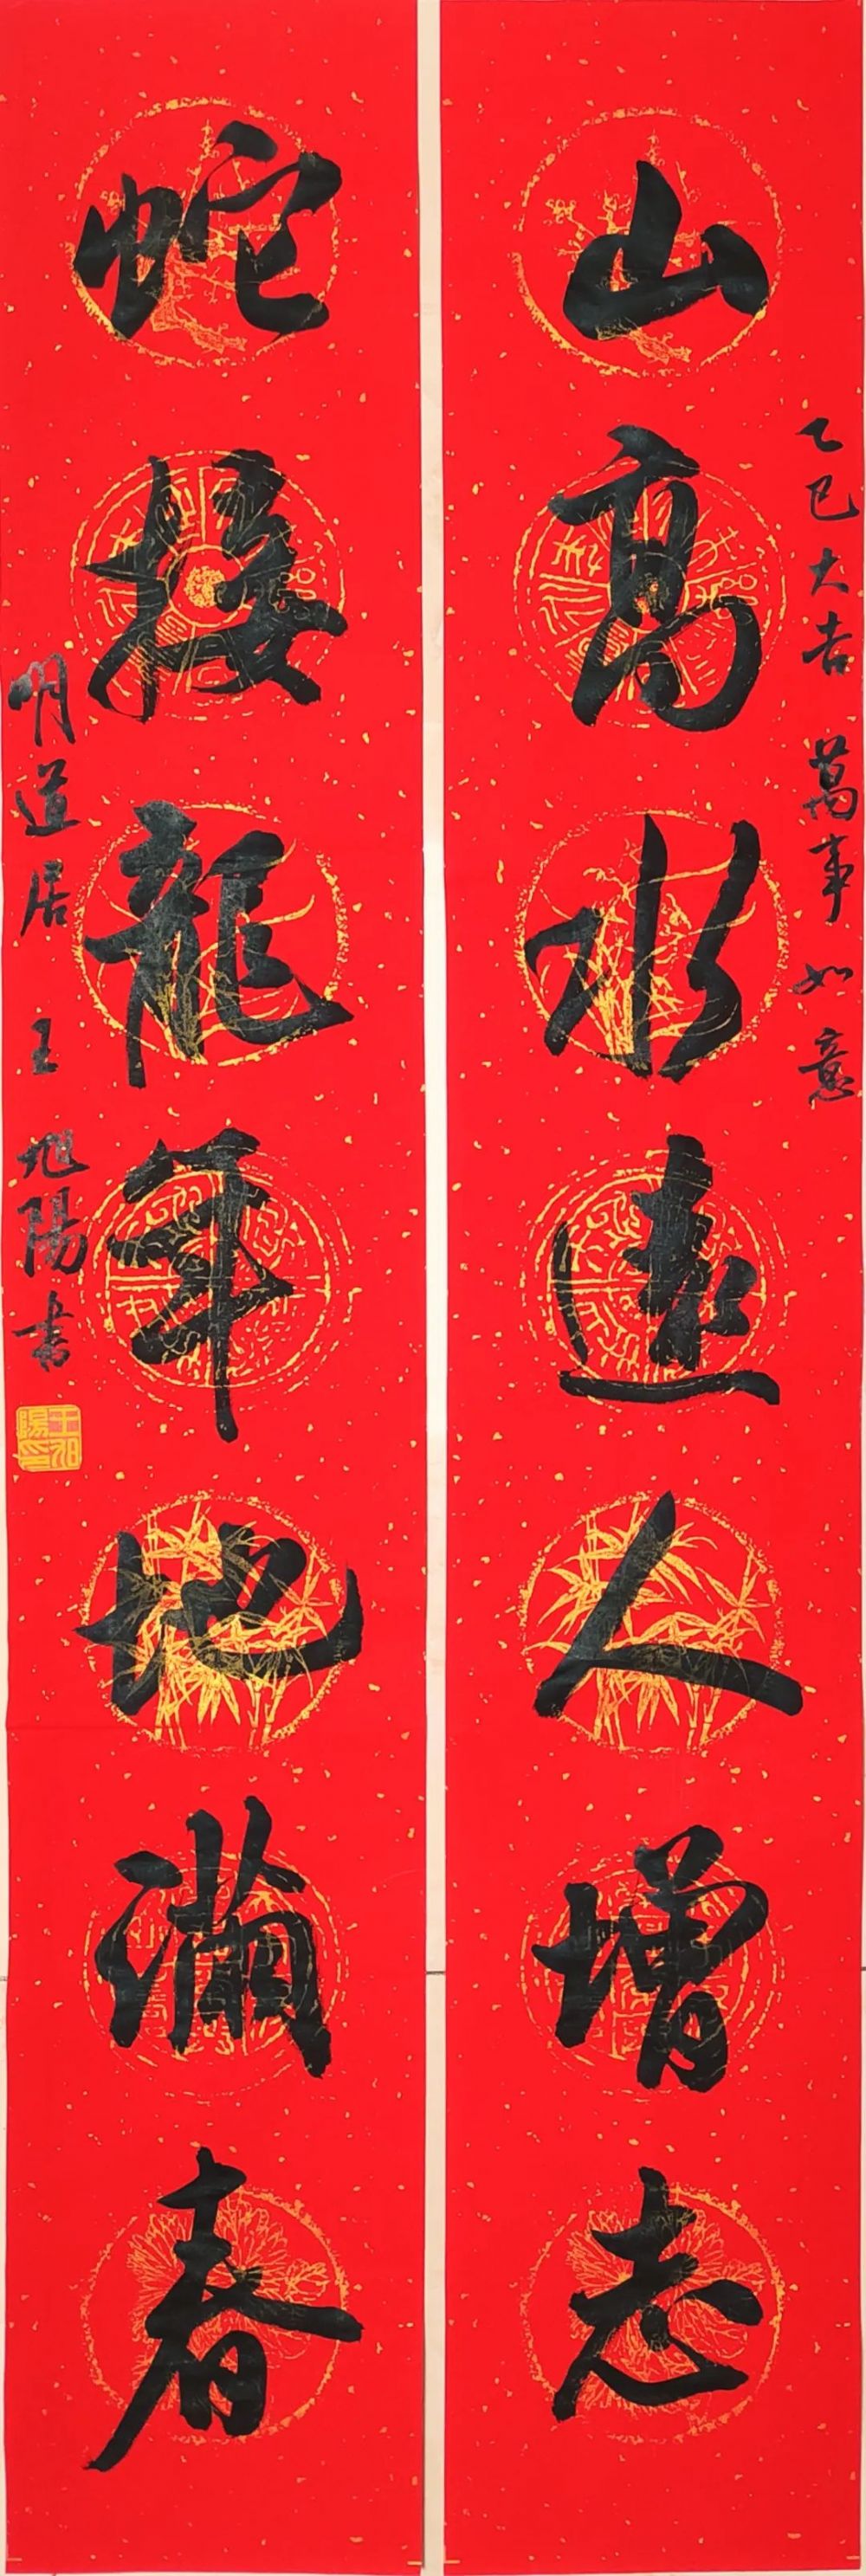 乙巳大吉 萬事如意
山高水遠人增志
蛇接龍年地滿春
明道居 王旭陽書
王旭陽印